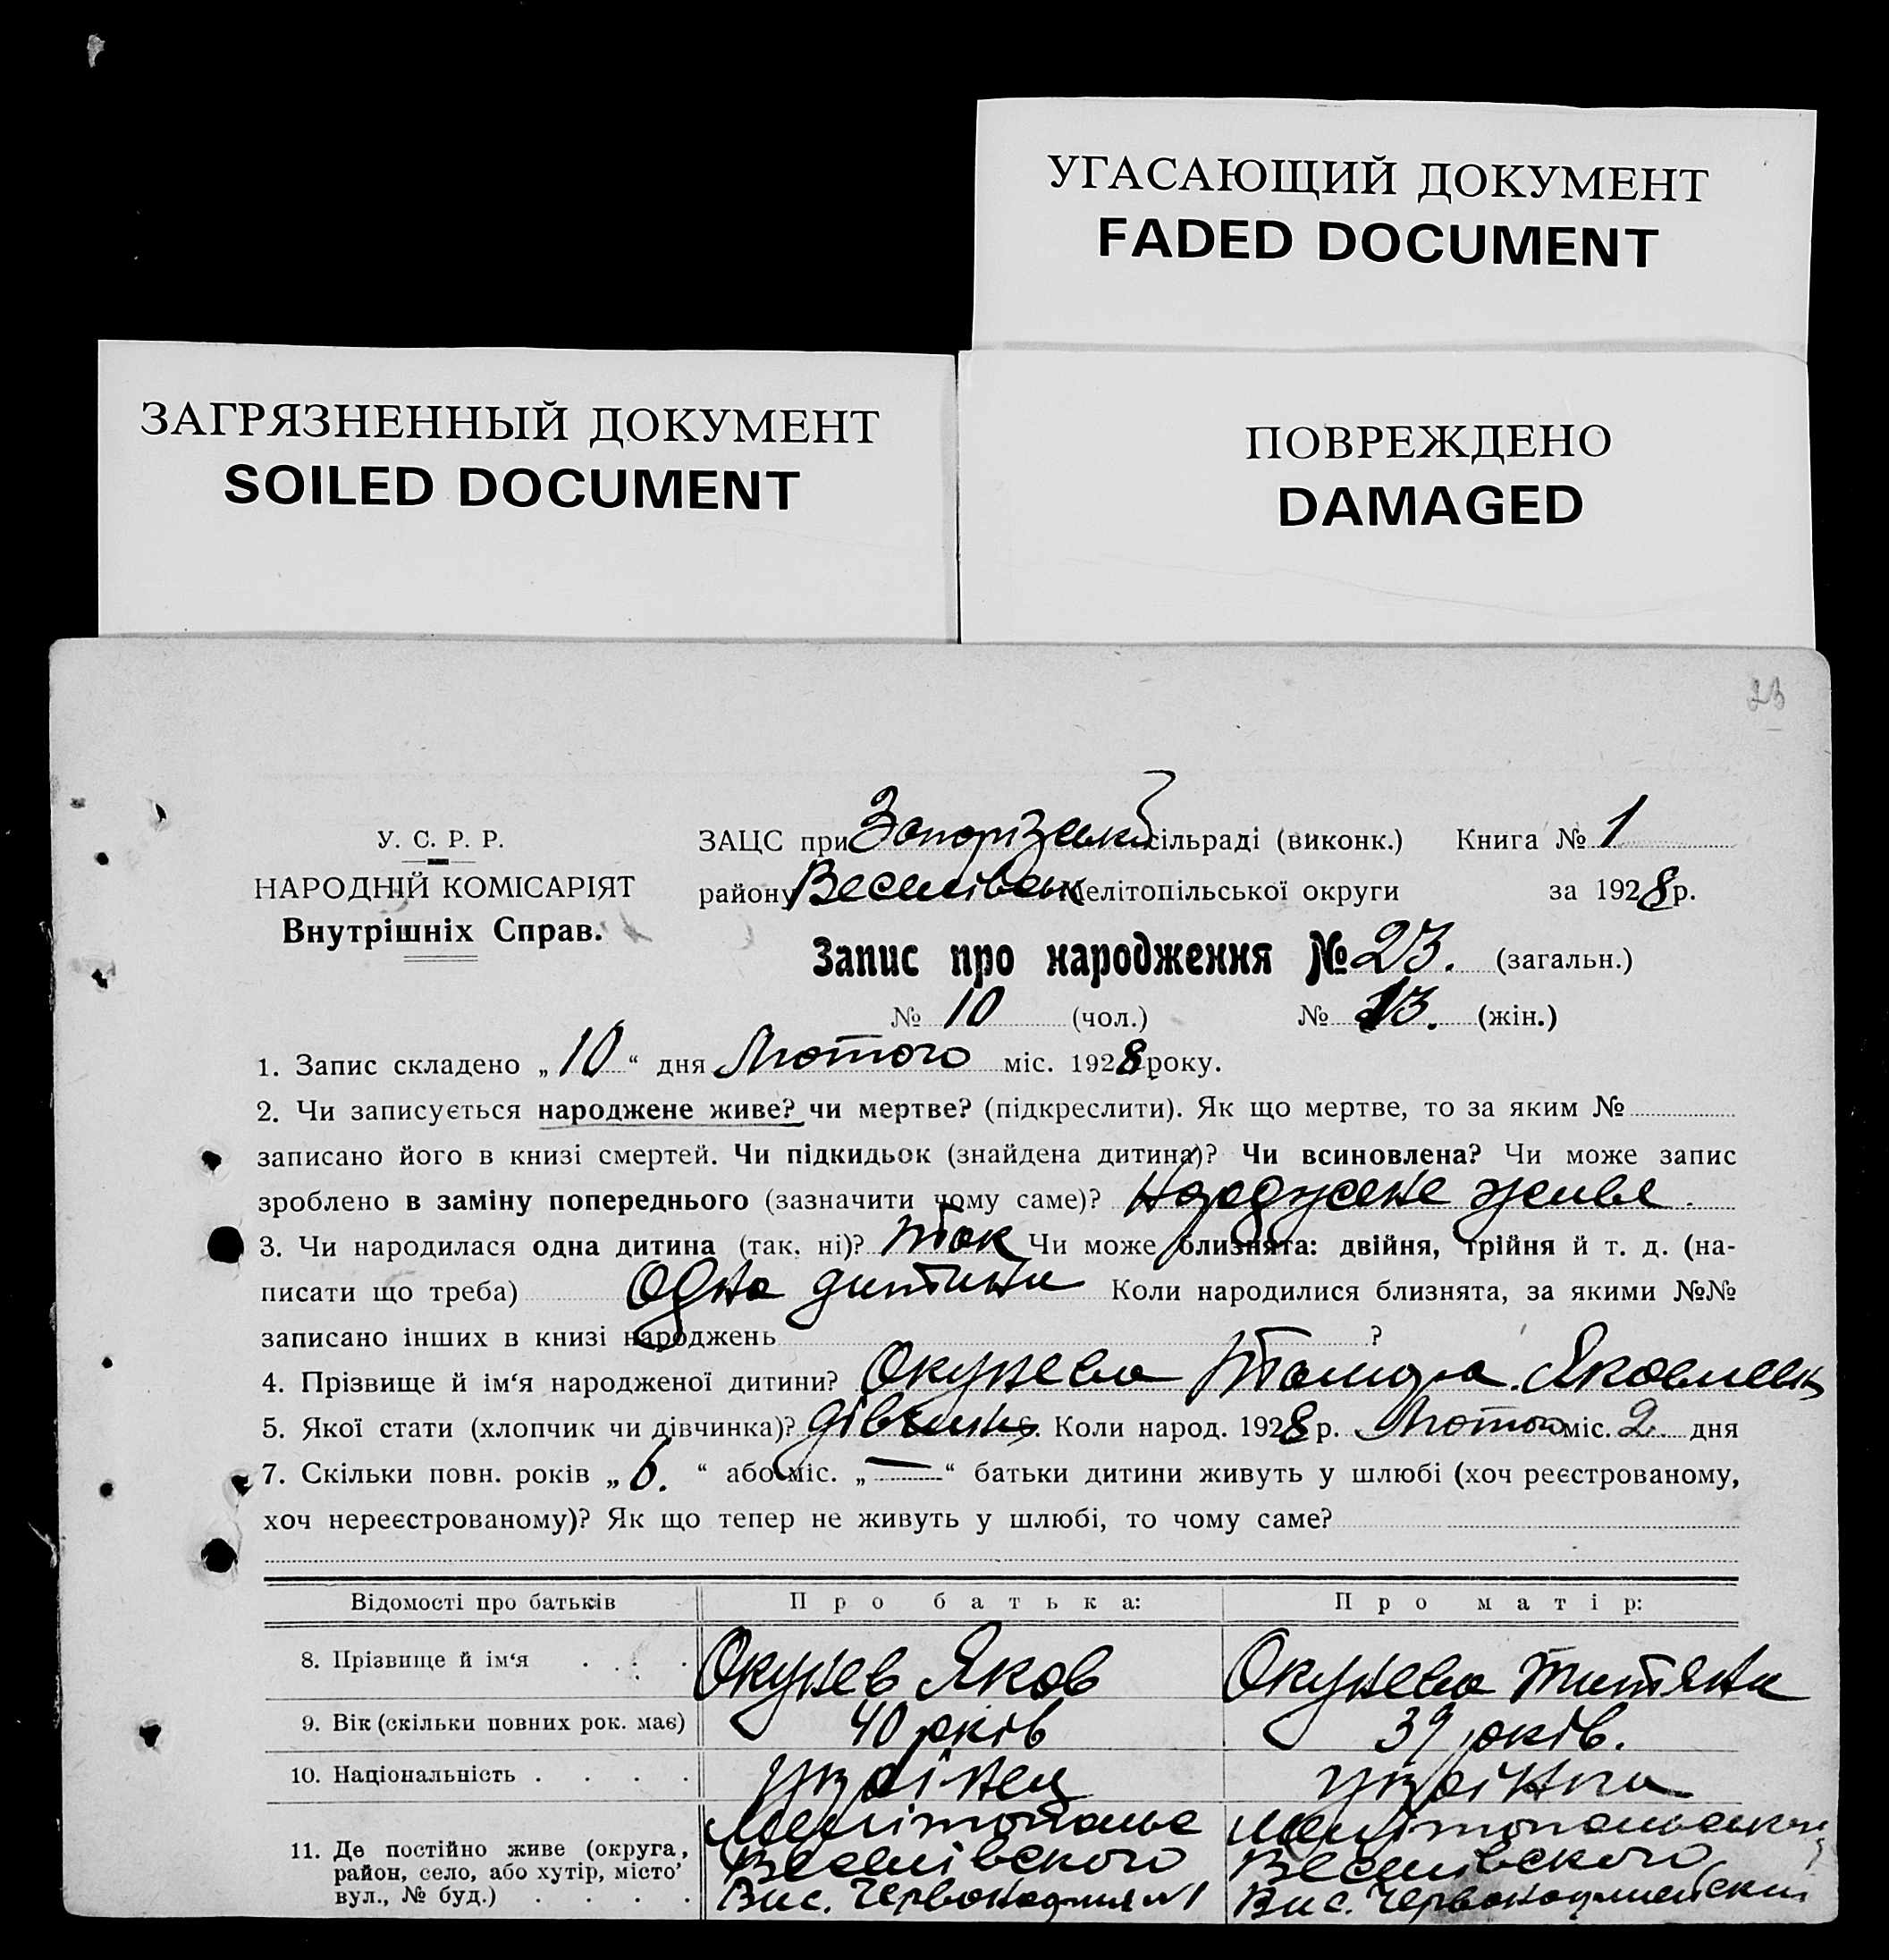 УГАСАЮЩИЙ ДОКУМЕНТ
FADED DOCUMENT
ЗАГРЯЗНЕННЫЙ ДОКУМЕНТ
SOILED DOCUMENT
ПОВРЕЖДЕНО
DAMAGED
23
У. С. Р. Р.
НАРОДНІЙ КОМІСАРІЯТ
Внутрішніх Справ.
ЗАЦС при Запорізькій сільраді (виконк.) Книга № 1
району Веселівськ Мелітопільської округи за 1928 р.
Запис про народження № 23. (загальн.)
№ 10 (чол.) № 13. (жін.)
1. Запис складено „10“ дня Лютого міс. 1928 року.
2. Чи записується народжене живе? чи мертве? (підкреслити). Як що мертве, то за яким №
записано його в книзі смертей. Чи підкидьок (знайдена дитина)? Чи всиновлена? Чи може запис
зроблено в заміну попереднього (зазначити чому саме)? Народжене живе.
3. Чи народилася одна дитина (так, ні)? так Чи може близнята: двійня, трійня й т. д. (на-
писати що треба) Одна дитина Коли народилися близнята, за якими №№
записано інших в книзі народжень ?
4. Прізвище й ім‘я народженої дитини? Окунева Тамара.
5. Якої стати (хлопчик чи дівчинка)? дівчинка Коли народ. 1928 р. Лютого міс. 2. дня
7. Скільки повн. років „6.“ або міс. „—“ батьки дитини живуть у шлюбі (хоч реєстрованому,
хоч нереєстрованому)? Як що тепер не живуть у шлюбі, то чому саме?
Відомості про батьків Про батька: Про матір:
8. Прізвище й ім‘я . . . . Окунев Яков Окунева Титяна
9. Вік (скільки повних рок. має) 40 років 39 років.
10. Національність . . . . українец українка
11. Де постійно живе (округа,
район, село, або хутір, місто’
вул., № буд.) . . . .
Веселівского Веселівского
Вис. Вис.